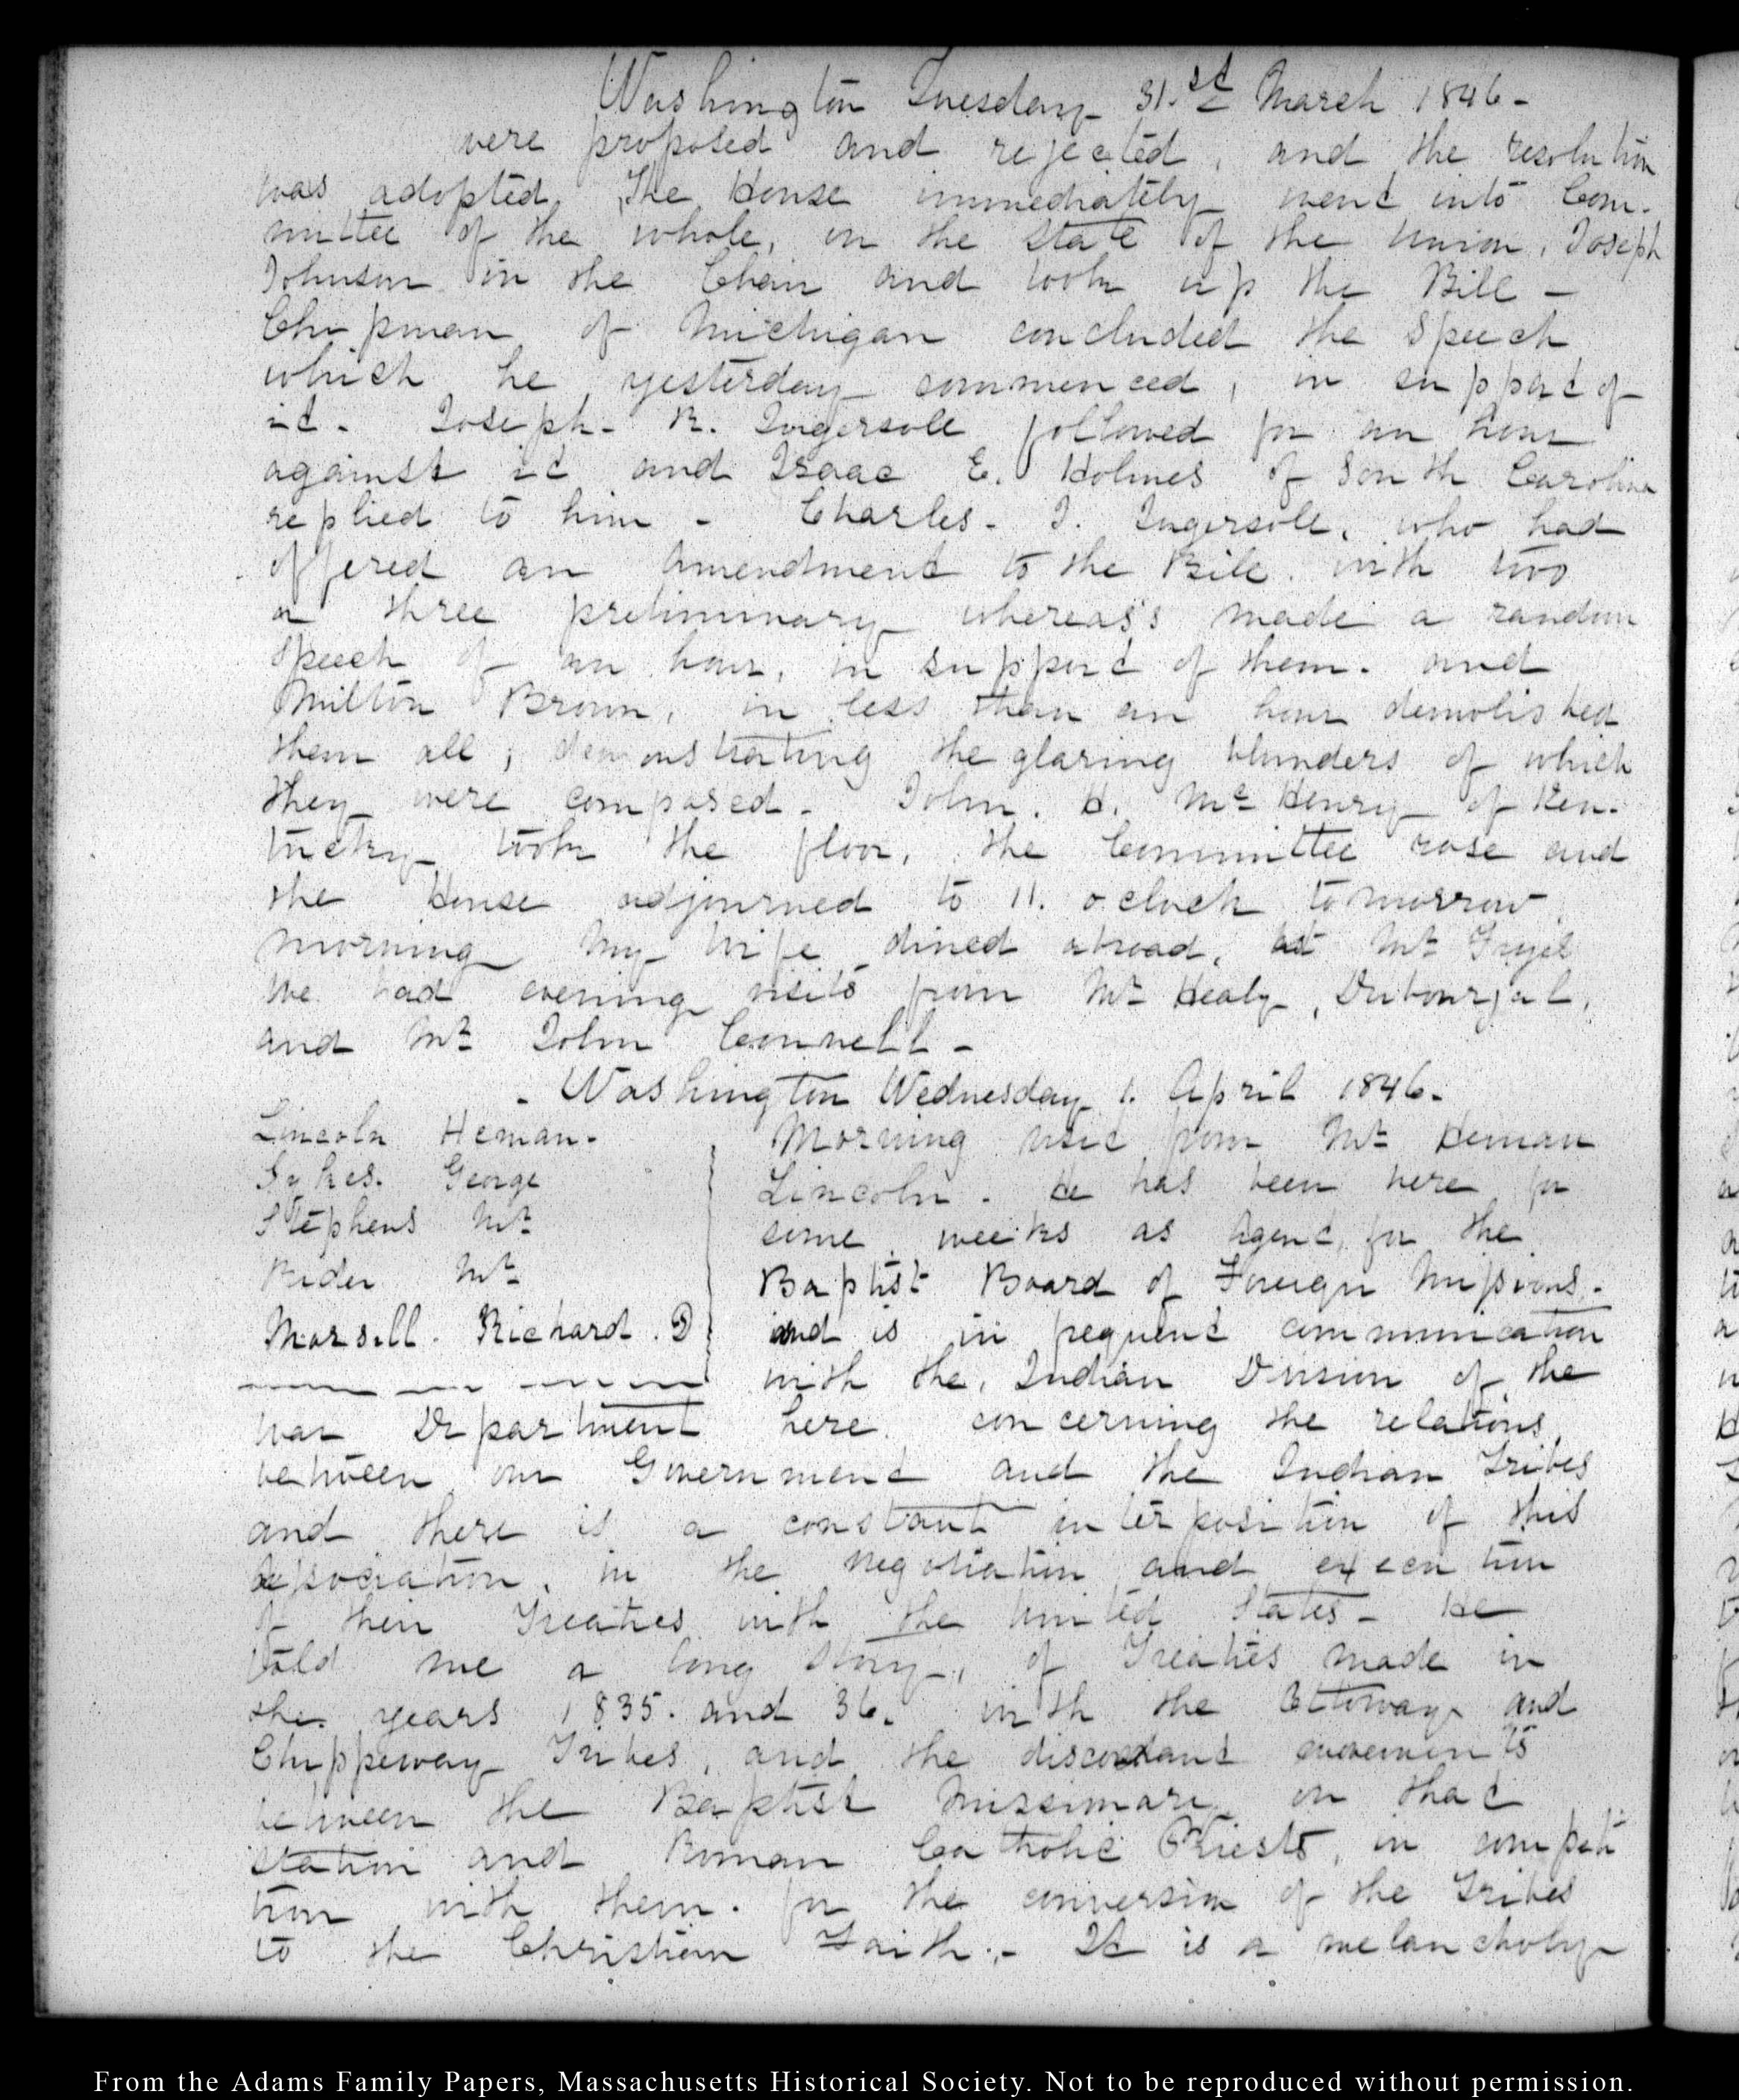 Washington Tuesday 31.st March 1846-
were proposed and rejected, and the resolution
was adopted. The House immediately went into Com-
mittee of the whole, on the state of the Union, Joseph
Johnson in the Chair and took up the Bill -
Chipman of Michigan concluded the speech
which he yesterday commenced, in support of
it. Joseph. R. Ingersoll followed for an hour
against it and Isaac E. Holmes of South Carolina
replied to him - Charles. J. Ingersoll, who had
offered an Amendment to the Bill. with two
or three preliminary whereas's made a random
speech of an hour, in support of them. and
Milton Brown, in less than an hour demolished
them all; demonstrating the glaring blunders of which
they were composed. John. H. Mc Henry of Ken-
tucky took the floor, the Committee rose and
the House adjourned to 11. o clock tomorrow
morning My Wife dined abroad, at Mr
We had evening visits from Mr Healy, Dubourjal,
and Mr John Connell -
- Washington Wednesday 1. April 1846.
Lincoln Heman.
Sykes. George
Stephens Mr
Rider Mr
Morsell. Richard. D
Morning visit from Mr Heman
Lincoln. He has been here for
some weeks as Agent, for the
Baptist Board of Foreign Missions.
and is in frequent communication
with the, Indian Division of the
War Department here. concerning the relations
between our Government and the Indian Tribes
and there is a constant interposition of this
Association, in the negotiation and execution
of their Treaties with the United States - He
told me a long story, of Treaties made in
the years 1835. and 36. with the Ottoway and
Chippeway Tribes, and the discordant movements
between the Baptist Missionary on that
station and Roman Catholic Priests, in competi
tion with them. for the conversion of the Tribes
to the Christian Faith.- It is a melancholy
From the Adams Family Papers, Massachusetts Historical Society. Not to be reproduced without permission.